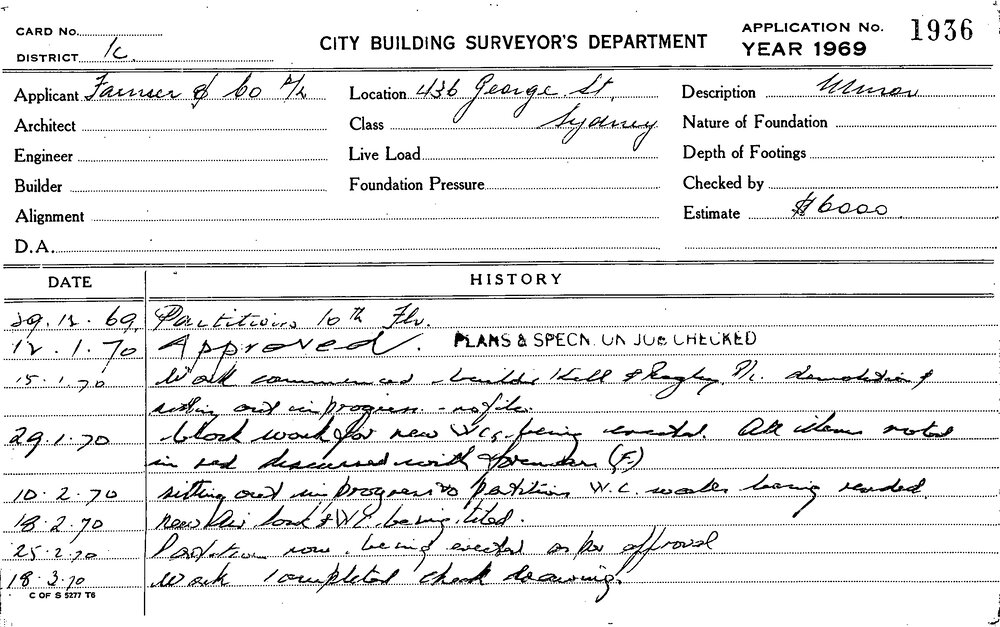 CARD No.
DISTRICT 1c.
CITY BUILDING SURVEYOR'S DEPARTMENT
APPLICATION No. 1936
YEAR 1969
Applicant Farmer & Co P/L
Location 436 George St,
Sydney
Description Minor
Architect
Class
Nature of Foundation
Engineer
Live Load
Depth of Footings
Builder
Foundation Pressure
Checked by
Alignment
Estimate $6000
D.A.
DATE HISTORY
29.12.69 Partitions 10th Flr.
12.1.70 Approved. PLANS & SPECN. ON JOB CHECKED
15.1.70 Work commenced - builder Kell & Rigby P/L. demolition &
setting out in progress - no file.
29.1.70 block work for new W.Cs. being erected. All items noted
in red discussed with foreman (F)
10.2.70 setting out in progress to partitions W.C. walls being rended.
18.2.70 new air lock & WC. being tiled.
25.2.70 Partition now being erected as per approval
18.3.70 Work completed check drawings.
C OF S 5277 T6